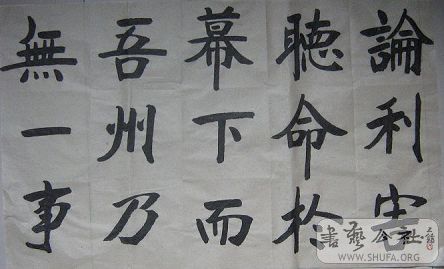 論利害
聽命於
幕下而
吾州乃
無一事
書藝公社
WWW.SHUFA.ORG